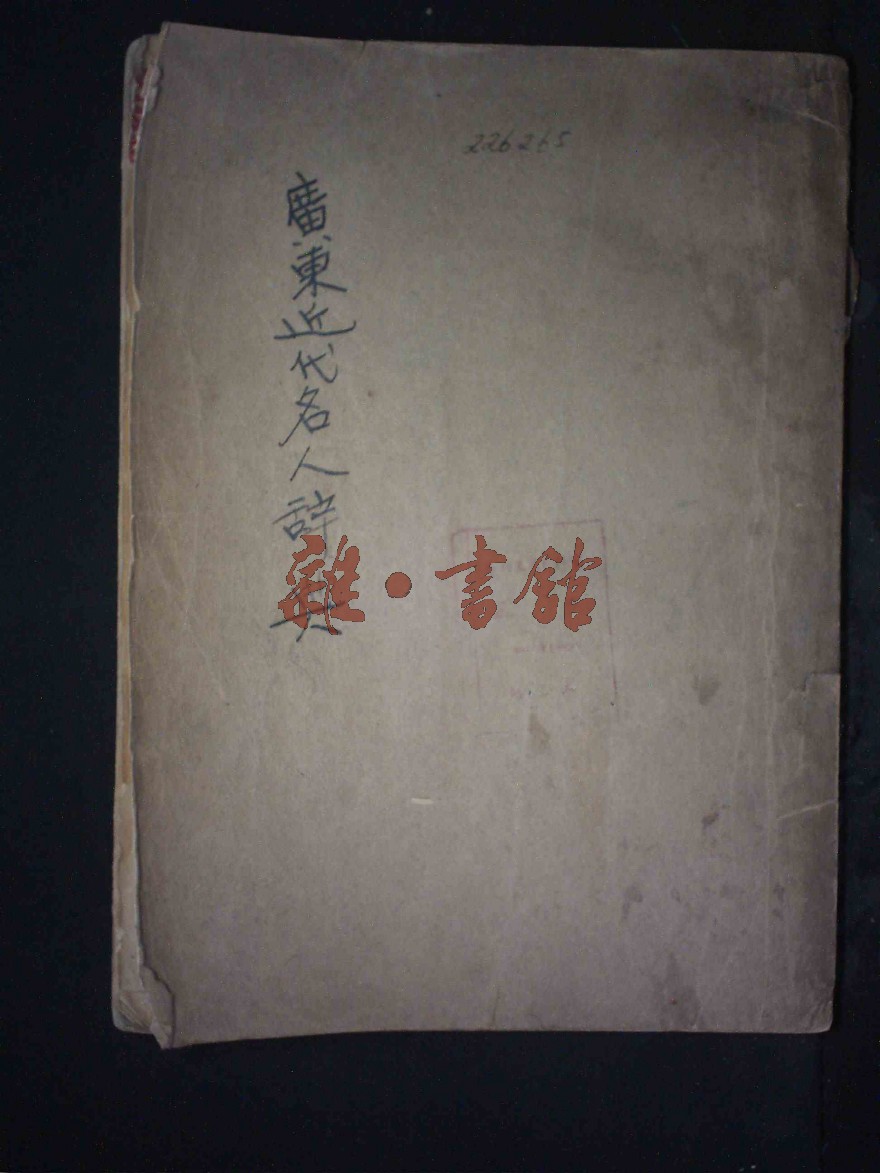 226265
廣東近代名人辞典
雜·書館